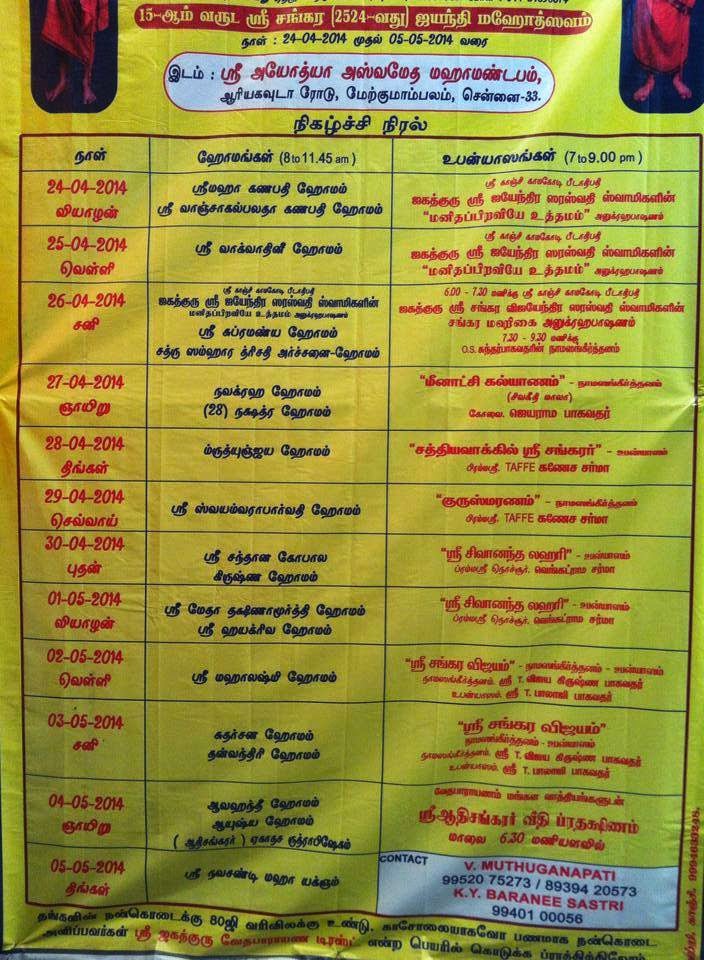 15-ஆம் வருட ஸ்ரீ சங்கர (2524-வது) ஜயந்தி மஹோத்ஸவம்
நாள் : 24-04-2014 முதல் 05-05-2014 வரை
இடம் : ஸ்ரீ அயோத்யா அஸ்வமேத மஹாமண்டபம்,
ஆரியகவுடா ரோடு, மேற்குமாம்பலம், சென்னை-33.
நிகழ்ச்சி நிரல்
நாள்
ஹோமங்கள் (8 to 11.45 am)
உபன்யாஸங்கள் (7 to 9.00 pm)
24-04-2014
வியாழன்
ஸ்ரீமஹா கணபதி ஹோமம்
ஸ்ரீ வாஞ்சாகல்பலதா கணபதி ஹோமம்
ஸ்ரீ காஞ்சி காமகோடி பீடாதிபதி
ஜகத்குரு ஸ்ரீ ஜயேந்திர ஸரஸ்வதி ஸ்வாமிகளின்
"மனிதப்பிறவியே உத்தமம்" அனுக்ரஹபாஷணம்
25-04-2014
வெள்ளி
ஸ்ரீ வாக்வாதினீ ஹோமம்
ஸ்ரீ காஞ்சி காமகோடி பீடாதிபதி
ஜகத்குரு ஸ்ரீ ஜயேந்திர ஸரஸ்வதி ஸ்வாமிகளின்
"மனிதப்பிறவியே உத்தமம்" அனுக்ரஹபாஷணம்
26-04-2014
சனி
ஸ்ரீ காஞ்சி காமகோடி பீடாதிபதி
ஜகத்குரு ஸ்ரீ ஜயேந்திர ஸரஸ்வதி ஸ்வாமிகளின்
மனிதப்பிறவியே உத்தமம் அனுக்ரஹபாஷணம்
ஸ்ரீ சுப்ரமண்ய ஹோமம்
சத்ரு ஸம்ஹார த்ரிசதி அர்ச்சனை-ஹோமம்
6.00 - 7.30 மணிக்கு ஸ்ரீ காஞ்சி காமகோடி பீடாதிபதி
ஜகத்குரு ஸ்ரீ சங்கர விஜயேந்திர ஸரஸ்வதி ஸ்வாமிகளின்
சங்கர மஹிமை அனுக்ரஹபாஷணம்
7.30 - 9.30 மணிக்கு
O.S. சுந்தர்பாகவதரின் நாமஸங்கீர்த்தனம்
27-04-2014
ஞாயிறு
நவக்ரஹ ஹோமம்
(28) நக்ஷத்ர ஹோமம்
"மீனாட்சி கல்யாணம்" - நாமஸங்கீர்த்தனம்
(சிவகீதி மாலா)
கோவை. ஜெயராம பாகவதர்
28-04-2014
திங்கள்
ம்ருத்யுஞ்ஜய ஹோமம்
"சத்தியவாக்கில் ஸ்ரீ சங்கரர்" - உபன்யாஸம்
பிரம்மஸ்ரீ. TAFFE கணேச சர்மா
29-04-2014
செவ்வாய்
ஸ்ரீ ஸ்வயம்வராபார்வதி ஹோமம்
"குருஸ்மரணம்" - நாமஸங்கீர்த்தனம்
பிரம்மஸ்ரீ. TAFFE கணேச சர்மா
30-04-2014
புதன்
ஸ்ரீ சந்தான கோபால
கிருஷ்ண ஹோமம்
"ஸ்ரீ சிவானந்த லஹரி" - உபன்யாஸம்
ப்ரம்மஸ்ரீ நொச்சூர். வெங்கட்ராம சர்மா
01-05-2014
வியாழன்
ஸ்ரீ மேதா தக்ஷிணாமூர்த்தி ஹோமம்
ஸ்ரீ ஹயக்ரிவ ஹோமம்
"ஸ்ரீ சிவானந்த லஹரி" - உபன்யாஸம்
ப்ரம்மஸ்ரீ நொச்சூர். வெங்கட்ராம சர்மா
02-05-2014
வெள்ளி
ஸ்ரீ மஹாலஷ்மி ஹோமம்
"ஸ்ரீ சங்கர விஜயம்" - நாமஸங்கீர்த்தனம் - உபன்யாஸம்
நாமஸங்கீர்த்தனம். ஸ்ரீ T. விஜய கிருஷ்ண பாகவதர்
உபன்யாஸம். ஸ்ரீ T. பாலாஜி பாகவதர்
03-05-2014
சனி
சுதர்சன ஹோமம்
தன்வந்திரி ஹோமம்
"ஸ்ரீ சங்கர விஜயம்"
நாமஸங்கீர்த்தனம் - உபன்யாஸம்
நாமஸங்கீர்த்தனம். ஸ்ரீ T. விஜய கிருஷ்ண பாகவதர்
உபன்யாஸம். ஸ்ரீ T. பாலாஜி பாகவதர்
04-05-2014
ஞாயிறு
ஆவஹந்தீ ஹோமம்
ஆயுஷ்ய ஹோமம்
( ஆதிசங்கரர் ) ஏகாதச ருத்ராபிஷேகம்
வேதபாராயணம் மங்கள வாத்தியங்களுடன்
ஸ்ரீஆதிசங்கரர் வீதி ப்ரதக்ஷிணம்
மாலை 6.30 மணியளவில்
05-05-2014
திங்கள்
ஸ்ரீ நவசண்டி மஹா யக்ஞம்
CONTACT
V. MUTHUGANAPATI
99520 75273 / 89394 20573
K.Y. BARANEE SASTRI
99401 00056
தங்களின் நன்கொடைக்கு 80ஜி வரிவிலக்கு உண்டு. காசோலையாகவோ பணமாக நன்கொடை
அளிப்பவர்கள் ஸ்ரீ ஜகத்குரு வேதபாராயண டிரஸ்ட் என்ற பெயரில் கொடுக்க ப்ரார்த்திக்கிறோம்
காஞ்சி. 9994633248.